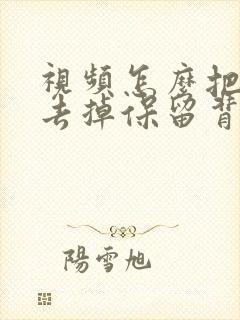 視頻怎麼把
去掉保留背
陽雪旭